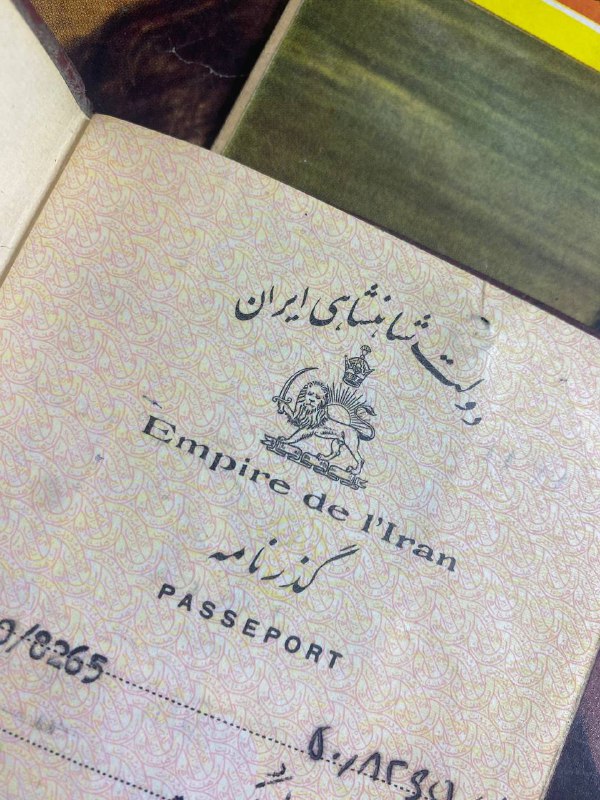 دولت شاهنشاهی ایران
Empire de l'Iran
گذرنامه
PASSEPORT
/8265